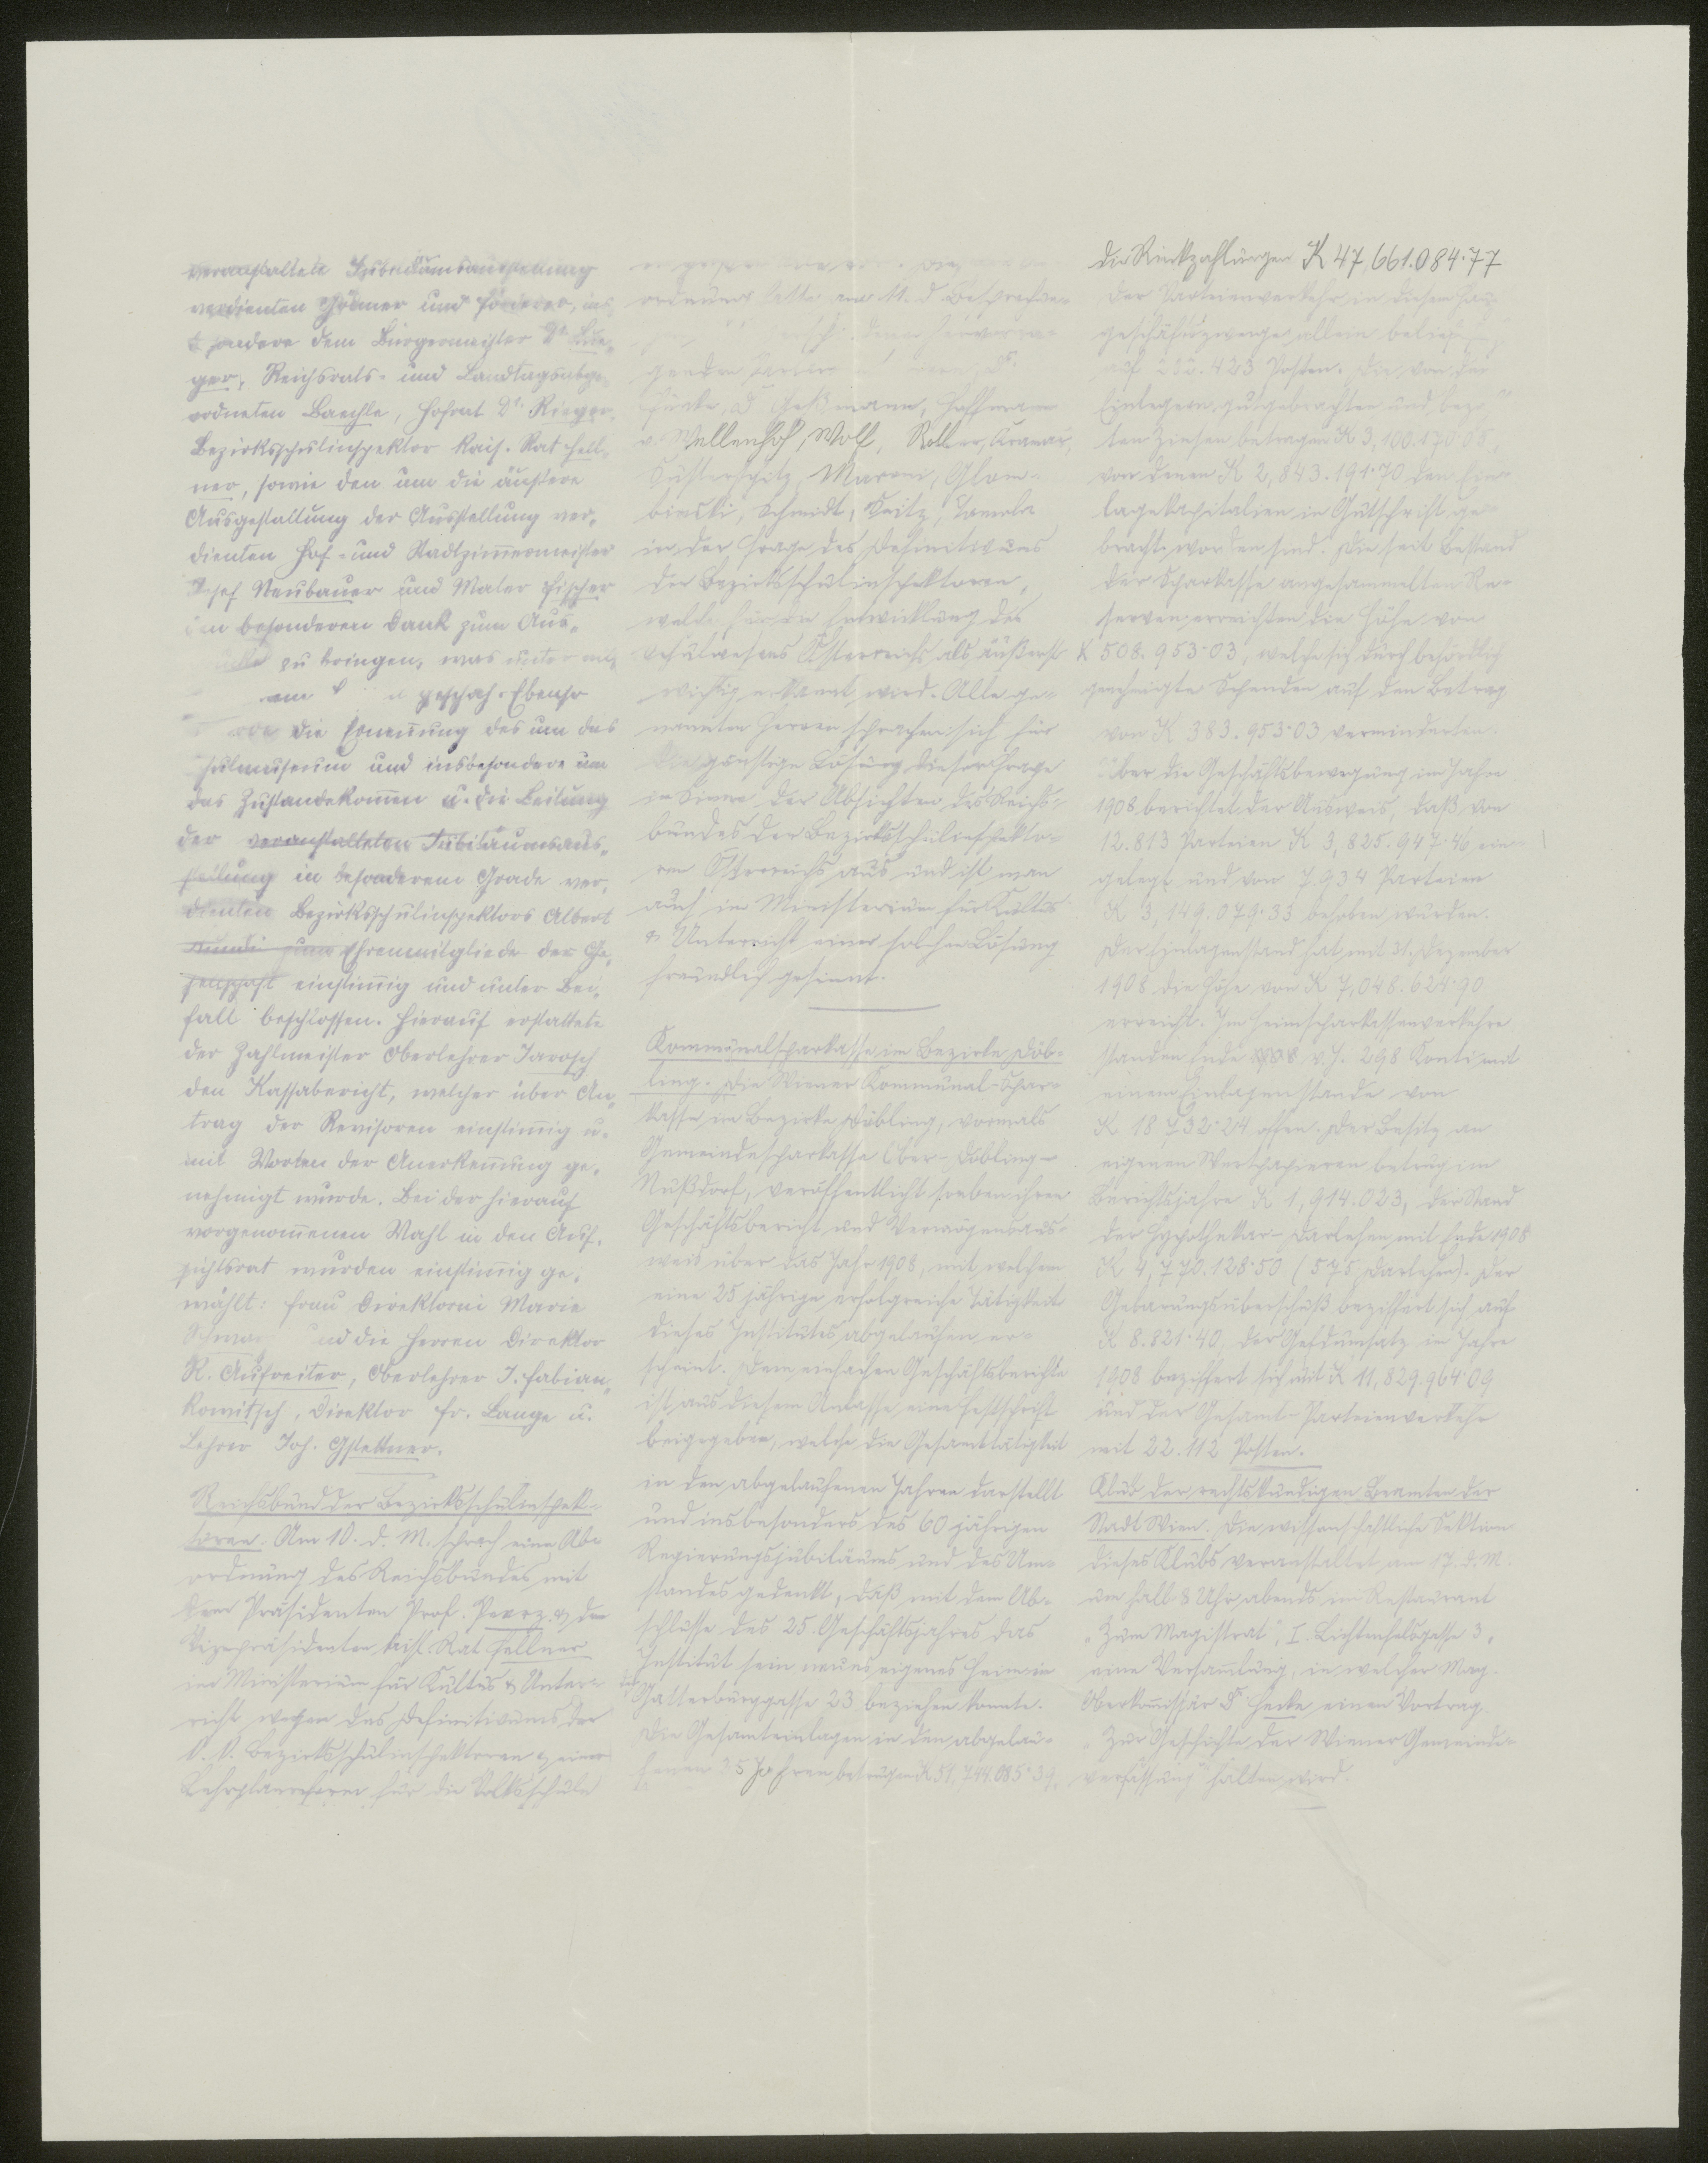 veranstaltete Jubiläumsausstellung
verdienten Gönner und Förderer, ins
sondere dem Bürgermeister Dr. Lue-
ger, Reichsrats- und Landtagsabge-
ordneten Baechle, Hofrat Dr. Rieger,
Bezirksschulinspektor kais. Rat Fell-
ner, sowie den um die äußere
Ausgestaltung der Ausstellung ver-
dienten Hof- und Stadtzimmermeister
Josef Neubauer und Maler Fischer
den besonderen Dank zum Aus-
zu bringen, was unter
geschah. Ebenso
die Ernennung des um das
Schulmuseum und insbesondere um
das Zustandekommen u. die Leitung
der veranstalteten Jubiläumsaus-
stellung in besonderem Grade ver-
dienten Bezirksschulinspektors Albert
zum Ehrenmitgliede der Ge-
sellschaft einstimmig und unter Bei-
fall beschlossen. Hierauf erstattete
der Zahlmeister Oberlehrer Jarosch
den Kassabericht, welcher über An-
trag der Revisoren einstimmig u.
mit Worten der Anerkennung ge-
nehmigt wurde. Bei der hierauf
vorgenommenen Wahl in den Auf-
sichtsrat wurden einstimmig ge-
wählt: Frau Direktorin Marie
und die Herren Direktor
R. Aufreiter, Oberlehrer J. Fabian-
kowitsch, Direktor Fr. Lange u.
Lehrer Joh. Gstettner.
Reichsbund der Bezirksschulinspek-
toren. Am 10. d. M. sprach eine Ab-
ordnung des Reichsbundes mit
dem Präsidenten Prof. Pewrz & dem
Vizepräsidenten kais. Rat Fellner
im Ministerium für Kultus & Unter-
richt wegen des Definitivums der
k. k. Bezirksschulinspektoren & einer
Lehrplanreform für die Volksschule
ordnung hatte am 11. d. Besprechun-
genden
Funke, Dr. Geßmann, Hoffmann
v. Wellenhof, Wolf, Roller, Kramar,
Susterschitz, Maroni, Glom-
binski, Schmidt, Seitz, Tomola
in der Frage des Definitivums
der Bezirksschulinspektoren,
welche für die Entwicklung des
Schulwesens Österreichs als äußerst
wichtig erkannt wird. Alle ge-
nannten Herren sprachen sich für
günstige Lösung dieser Frage
im Sinne der Absichten des Reichs-
bundes der Bezirksschulinspekto-
ren Österreichs aus und ist man
auch im Ministerium für Kultus
& Unterricht einer solchen Lösung
freundlich gesinnt.
Kommunalsparkasse im Bezirke Döb-
ling. Die Wiener Kommunal-Spar-
kasse im Bezirke Döbling, vormals
Gemeindesparkasse Ober-Döbling-
Nußdorf, veröffentlicht soeben ihren
Geschäftsbericht und Vermögensaus-
weis über das Jahr 1908, mit welchem
eine 25 jährige erfolgreiche Tätigkeit
dieses Institutes abgelaufen er-
scheint. Dem einfachen Geschäftsberichte
ist aus diesem Anlasse eine Festschrift
beigegeben, welche die Gesamttätigkeit
in den abgelaufenen Jahren darstellt
und insbesonders des 60 jährigen
Regierungsjubiläums und des Um-
standes gedenkt, daß mit dem Ab-
schlusse des 25. Geschäftsjahres das
Institut sein neues eigenes Heim in
der Gatterburggasse 23 beziehen konnte.
Die Gesamteinlagen in den abgelau-
fenen 25 Jahren betrugen K 51,744.085·39,
die Rückzahlungen K 47,661.084·77
Der Parteienverkehr in diesem
geschäftszweige allein belief
auf 232.423 Posten. Die von den
Einlegern zugebrachten und
ten Zinsen betragen K 3,100.170·05,
von denen K 2,843.191·70 den Ein-
lagekapitalien in Gutschrift ge-
bracht worden sind. Die seit Bestand
der Sparkasse angesammelten Re-
serven erreichten die Höhe von
K 508.953·03, welche sich durch behördlich
genehmigte Spenden auf den Betrag
von K 383.953·03 verminderten.
Über die Geschäftsbewegung im Jahre
1908 berichtet der Ausweis, daß von
12.813 Parteien K 3,825.947·46 ein-
gelegt und von 7.934 Parteien
K 3,149.079·33 behoben wurden.
Der Einlagenstand hat mit 31. Dezember
1908 die Höhe von K 7,048.624·90
erreicht. Im Heimsparkassenverkehre
standen Ende v. J. 298 Konti mit
einem Einlagenstande von
K 18.732·24 offen. Der Besitz an
eigenen Wertpapieren betrug im
Berichtsjahre K 1,914.023, der Stand
der Hypothekar-Darlehen mit Ende 1908
K 4,770.128·50 (575 Darlehen). Der
Gebarungsüberschuß beziffert sich auf
K 8.821·40, der Geldumsatz im Jahre
1908 beziffert sich mit K 11,829.964·09
und der Gesamt-Parteienverkehr
mit 22.112 Posten.
Klub der rechtskundigen Beamten der
Stadt Wien. Die wissenschaftliche Sektion
dieses Klubs veranstaltet am 17. d. M.
um halb 8 Uhr abends im Restaurant
„Zum Magistrat", I. Lichtenfelsgasse 3,
eine Versammlung, in welcher Mag.
Oberkommissär Dr. Hecke einen Vortrag
„Zur Geschichte der Wiener Gemeinde-
verfassung" halten wird.